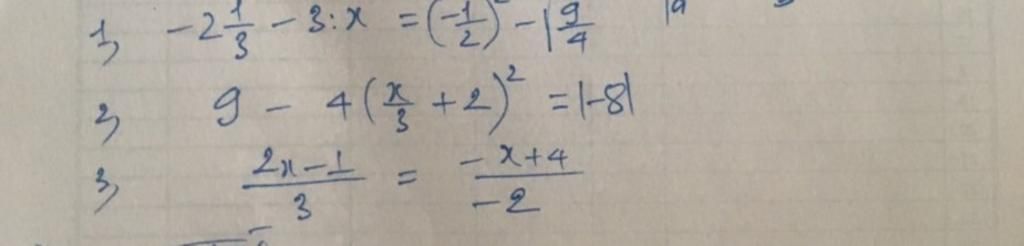 1, -2 1/3 - 3 : x = (-1/2)² - √(9/4)
2, 9 - 4(x/3 + 2)² = |-8|
3, (2x-1)/3 = (-x+4)/-2